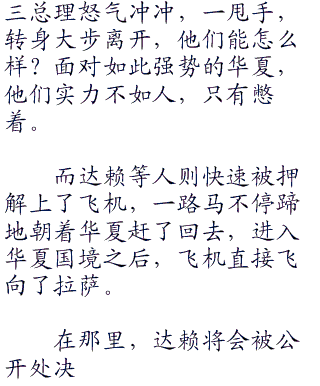 三总理怒气冲冲，一甩手，
转身大步离开，他们能怎么
样？面对如此强势的华夏，
他们实力不如人，只有憋
着。
而达赖等人则快速被押
解上了飞机，一路马不停蹄
地朝着华夏赶了回去，进入
华夏国境之后，飞机直接飞
向了拉萨。
在那里，达赖将会被公
开处决